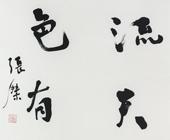 流天
色有
張傑